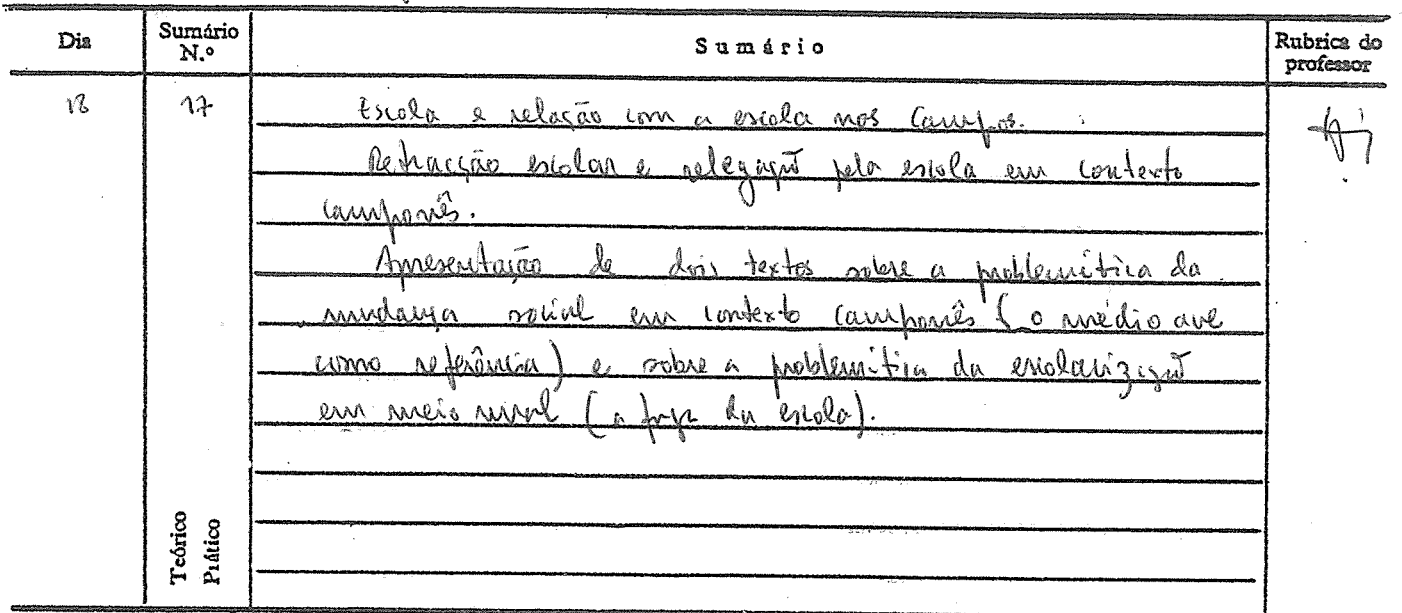 Dia Sumário N.º Sumário Rubrica do professor
18 17 Escola e relação com a escola nos Campos.
Retracção escolar e relegação pela escola em contexto
camponês.
Apresentação de dois textos sobre a problemática da
mudança social em contexto camponês (o médio ave
como referência) e sobre a problemática da escolarização
em meio rural (a da escola).
Teórico
Prático